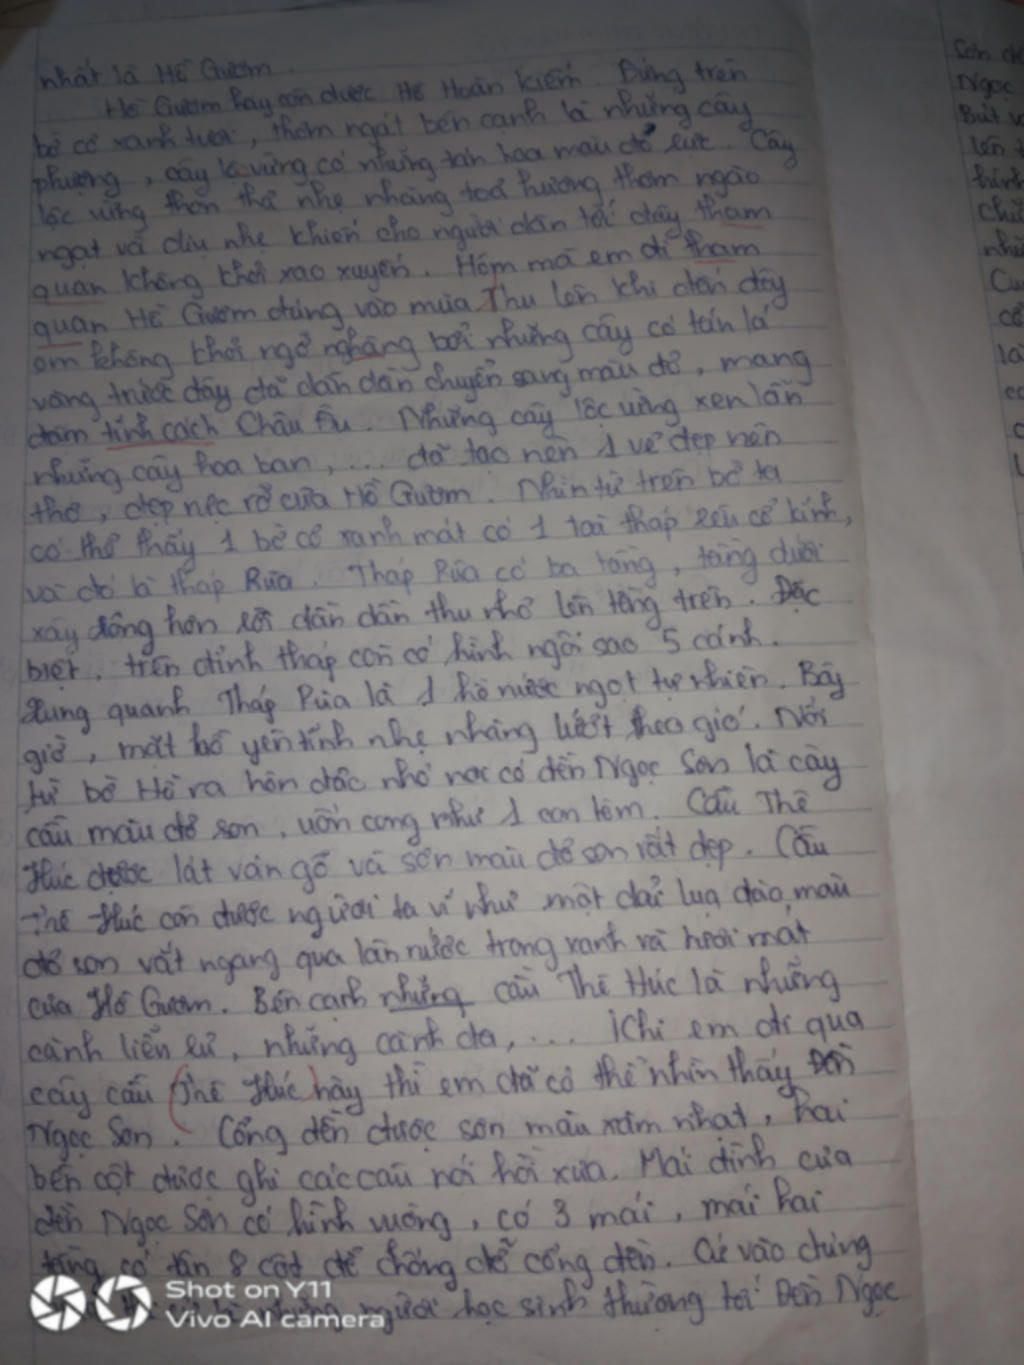 nhất là Hồ Gươm.
Hồ Gươm hay còn được Hồ Hoàn Kiếm. Đứng trên
bờ cỏ xanh tươi, thơm ngát bên cạnh là những cây
phượng, cây lộc vừng có những tán hoa màu đỏ rực. Cây
lộc vừng thon thả nhẹ nhàng toả hương thơm ngào
ngạt và dịu nhẹ khiến cho người dân tới đây tham
quan không khỏi xao xuyến. Hôm mà em đi tham
quan Hồ Gươm đúng vào mùa Thu lên khi đến đây
em không khỏi ngỡ nghàng bởi những cây có tán lá
vàng trước đây đã dần dần chuyển sang màu đỏ, mang
đậm tính cách Châu Âu. Những cây lộc vừng xen lẫn
những cây hoa ban, ... đã tạo nên 1 vẻ đẹp nên
thơ, đẹp rực rỡ của Hồ Gươm. Nhìn từ trên bờ ta
có thể thấy 1 bờ cỏ xanh mát có 1 toà tháp rêu cổ kính,
và đó là tháp Rùa. Tháp Rùa có ba tầng, tầng dưới
xây rộng hơn rồi dần dần thu nhỏ lên tầng trên. Đặc
biệt, trên đỉnh tháp còn có hình ngôi sao 5 cánh.
Xung quanh Tháp Rùa là 1 hồ nước ngọt tự nhiên. Bây
giờ, mặt hồ yên tĩnh nhẹ nhàng lướt theo gió. Nối
từ bờ Hồ ra hòn đảo nhỏ nơi có đền Ngọc Sơn là cây
cầu màu đỏ son, uốn cong như 1 con tôm. Cầu Thê
Húc được lát ván gỗ và sơn màu đỏ son rất đẹp. Cầu
Thê Húc còn được người ta ví như một dải lụa đào, màu
đỏ son vắt ngang qua làn nước trong xanh và tươi mát
của Hồ Gươm. Bên cạnh những cầu Thê Húc là những
cành liễu rủ, những cành đa, ... Khi em đi qua
cây cầu Thê Húc này thì em đã có thể nhìn thấy Đền
Ngọc Sơn. Cổng đền được sơn màu xám nhạt, hai
bên cột được ghi các câu nói hồi xưa. Mái đình của
đền Ngọc Sơn có hình vuông, có 3 mái, mái hai
tầng có tận 8 cột để chống đỡ cổng đền. Cứ vào đúng
những người học sinh thường tới Đền Ngọc
Sơn
Ngọc
Bút
Shot on Y11
Vivo AI camera